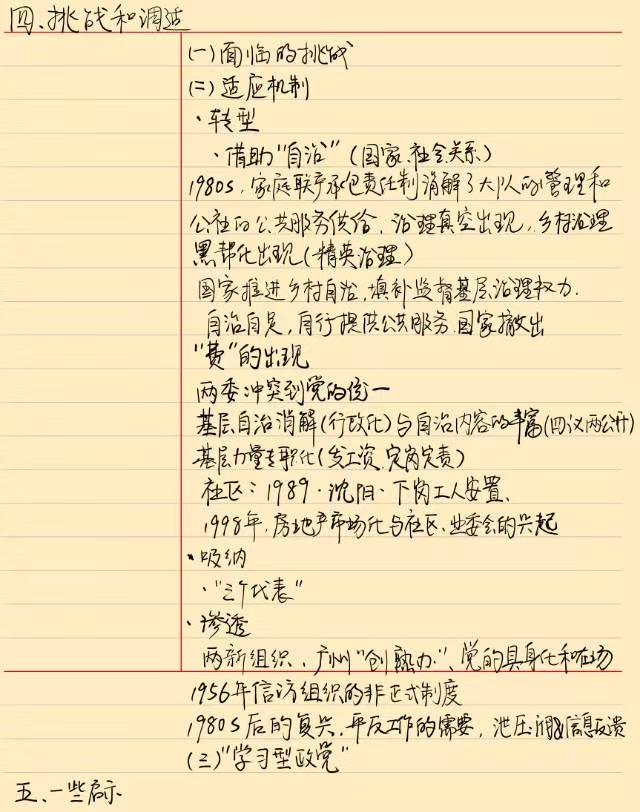 四、挑战和调适
(一)面临的挑战
(二)适应机制
·转型
·借助"自治"(国家、社会关系)
1980s,家庭联产承包责任制消解了大队的管理和
公社的公共服务供给,治理真空出现,乡村治理
黑帮化出现(精英治理)
国家推进乡村自治,填补监督基层治理权力.
自治自足,自行提供公共服务.国家撤出
"费"的出现
两委冲突到党的统一
基层自治消解(行政化)与自治内容的丰富(四议两公开)
基层力量专职化(发工资,定岗定责)
社区:1989·沈阳·下岗工人安置、
1998年,房地产市场化与社区、业委会的兴起
·吸纳
·"三个代表"
·渗透
两新组织、广州"创熟办"、党的具身化和在场
1956年信访组织的非正式制度
1980s后的复兴,平反工作的需要,泄压阀&信息反馈
(三)"学习型政党"
五、一些启示